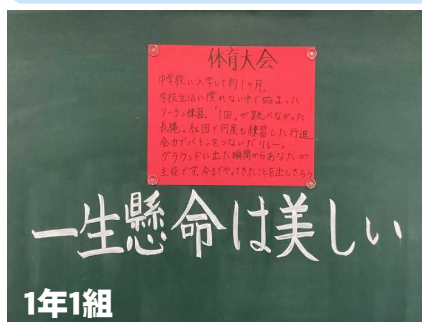 体育大会
中学校に入学して約1ヶ月。
学校生活に慣れない中で始まった
ソーラン練習。「1回」が跳べなかった
長縄。紅団で何度も練習した行進。
全力でバトンをつないだリレー。
グラウンドに出た瞬間からあなたが
主役です。今までやってきたことを出しきろう
一生懸命は美しい
1年1組